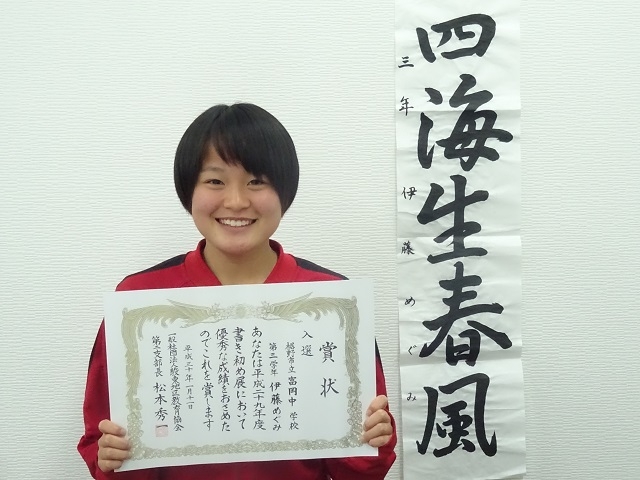 四海生春風
三年 伊藤めぐみ
賞状
入選
裾野市立 富岡中 学校
第三学年 伊藤めぐみ
あなたは平成二十九年度
書き初め展において
優秀な成績をおさめた
のでこれを賞します
平成三十年一月十一日
一般社団法人駿東地区教育協会
第二支部長 松木秀一